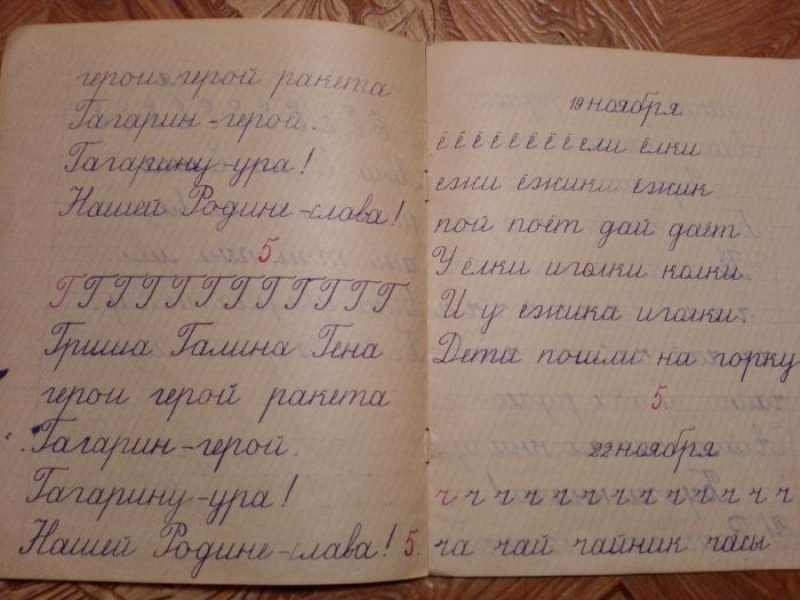 герои герой ракета
Гагарин-герой.
Гагарину-ура!
Нашей Родине-слава!
5.
ГГГГГГГГГГГГ
Гриша Галина Гена
герои герой ракета
Гагарин-герой.
Гагарину-ура!
Нашей Родине-слава! 5.
19 ноября
ё ё ё ё ё ё ё ё ели ёлки
ежи ёжики ёжик
пой поёт дай даёт
У ёлки иголки колки.
И у ёжика иголки.
Дети пошли на горку
5.
22 ноября
ч ч ч ч ч ч ч ч ч ч ч ч ч
ча чай чайник часы